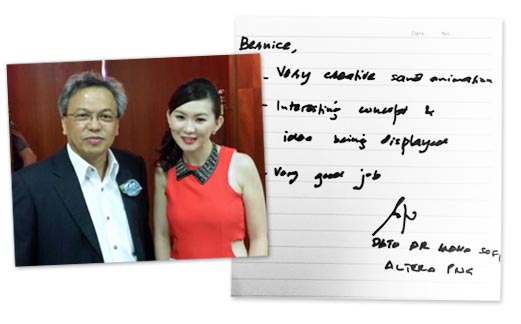 Date No.
Bernice,
- Very creative sand animation
- Interesting concept &
idea being displayed
- Very good job
DATO DR
ALTERA PNG